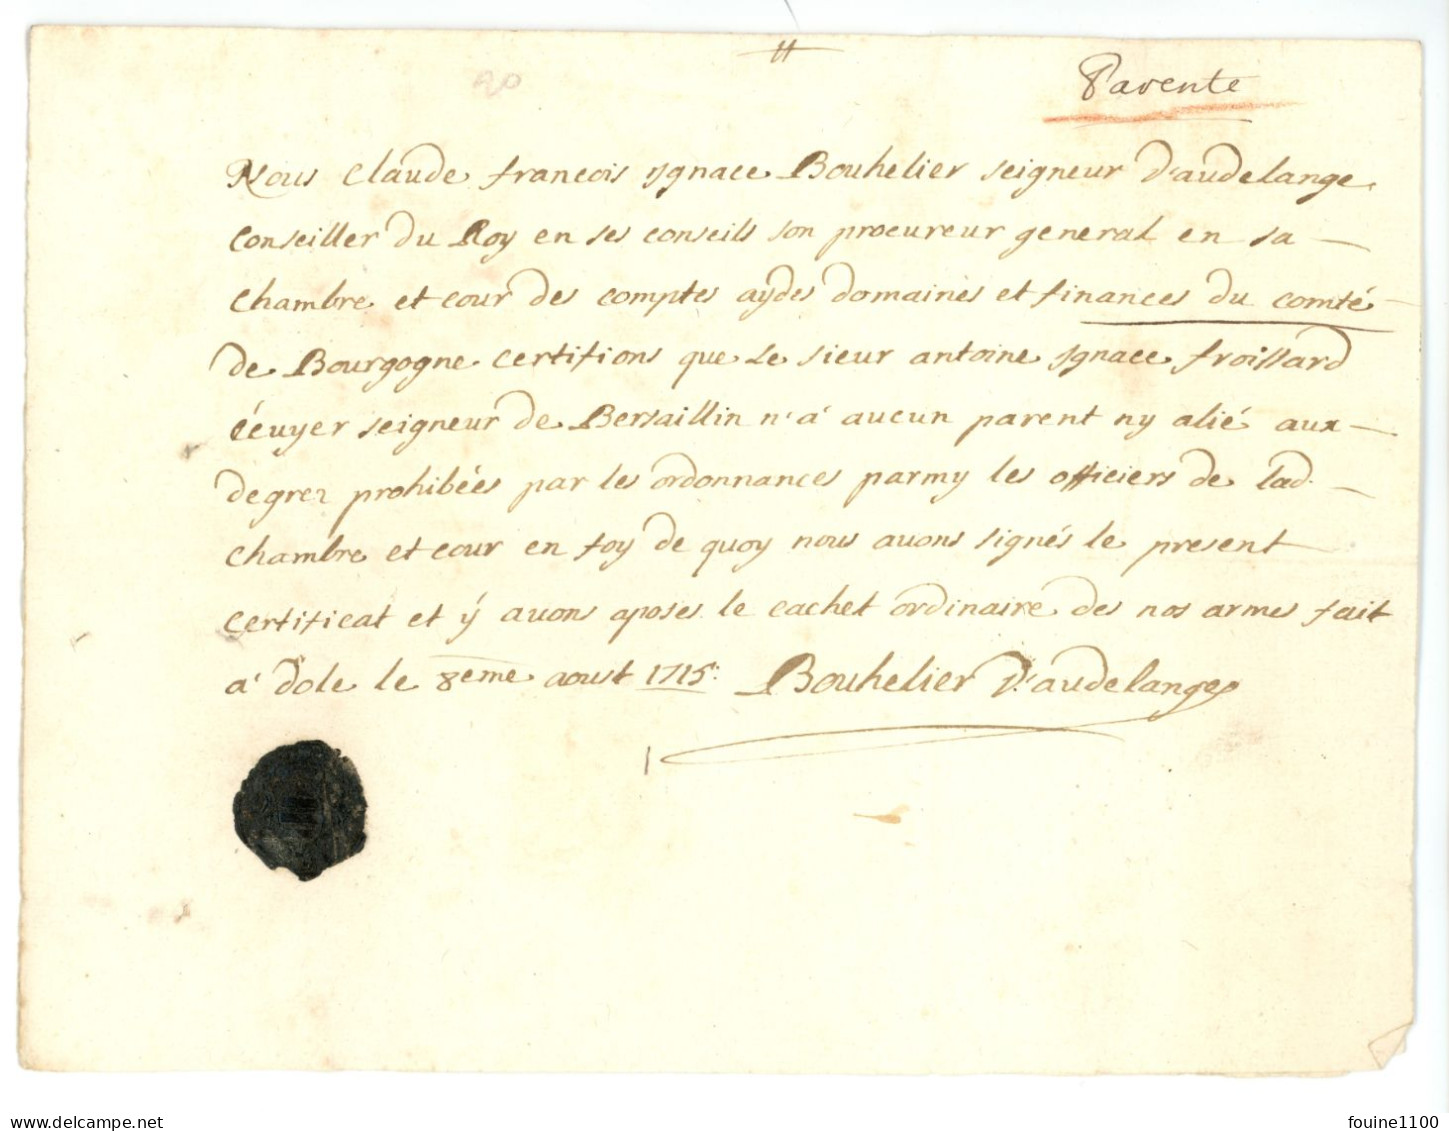 20
Parente
Nous Claude françois ygnace Bouhelier seigneur D'audelange
Conseiller Du Roy en ses conseils son procureur general en sa
Chambre et cour des comptes aydes domaines et finances du comté
de Bourgogne certifions que Le sieur antoine ygnace froissard
écuyer seigneur de Bersaillin n'a' aucun parent ny alié aux
degrez prohibées par les ordonnances parmy les officiers de lad.
Chambre et cour en foy de quoy nous avons signés le present
Certificat et ÿ avons aposes le cachet ordinaire des nos armes fait
a' dole le 8eme aoust 1715: Bouhelier D'audelange
delcampe.net
fouine1100